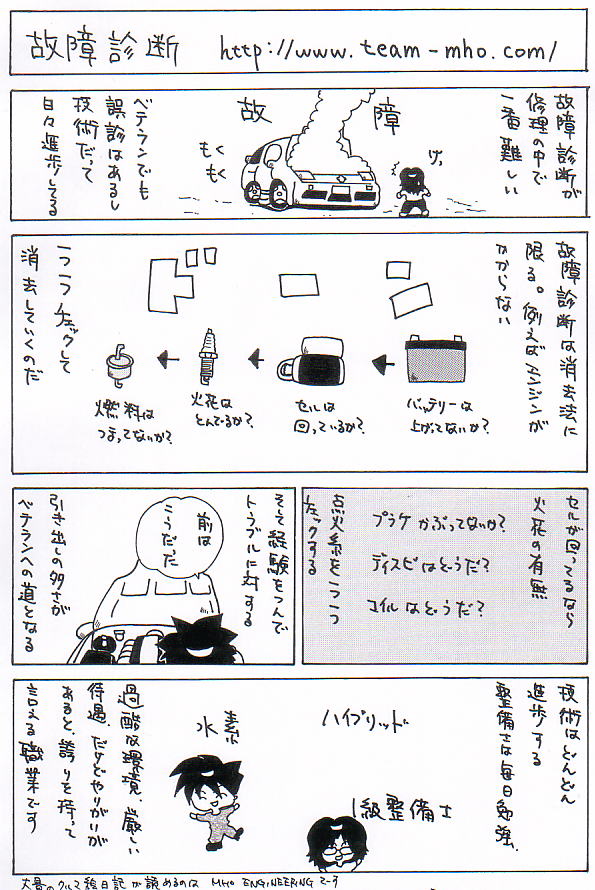 故障診断 http://www.team-mho.com/
故障診断が
修理の中で
一番難しい
故障
げっ
もく
もく
ベテランでも
誤診はあるし
技術だって
日々進歩してる
故障診断は消去法に
限る。例えばエンジンが
かからない
バッテリーは
上がってないか?
セルは
回っているか?
火花は
とんでるか?
燃料は
つまってないか?
一つ一つチェックして
消去していくのだ
セルが回ってるなら
火花の有無
プラグかぶってないか?
ディスビはどうだ?
コイルはどうだ?
点火系を一つ一つ
チェックする
そして経験をつんで
トラブルに対する
前は
こうだった
引き出しの多さが
ベテランへの道となる
技術はどんどん
進歩する
整備士は毎日勉強。
ハイブリッド
1級整備士
水素
過酷な環境、厳しい
待遇、だけどやりがいが
あると、誇りを持って
言える職業です
クルマ絵日記が読めるのは MHO ENGINEERING でーす